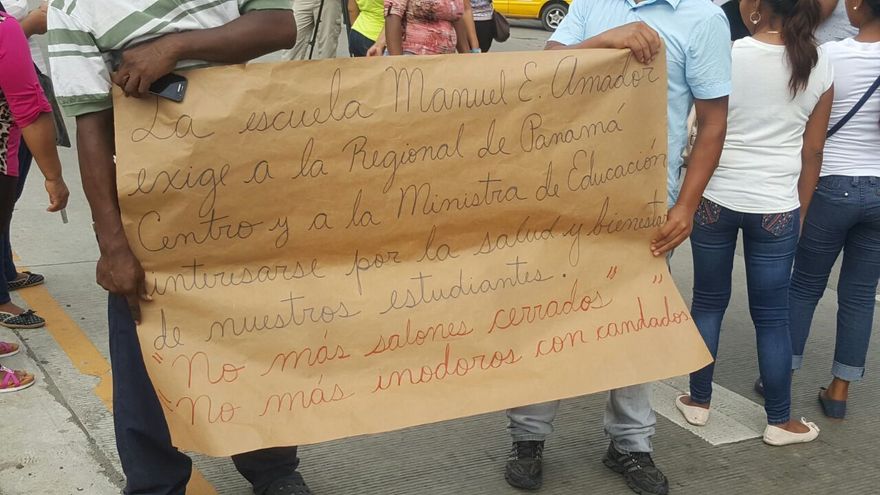 La escuela Manuel E. Amador
exige a la Regional de Panamá
Centro y a la Ministra de Educación
interesarse por la salud y bienestar
de nuestros estudiantes.
"No más salones cerrados"
"No más inodoros con candados